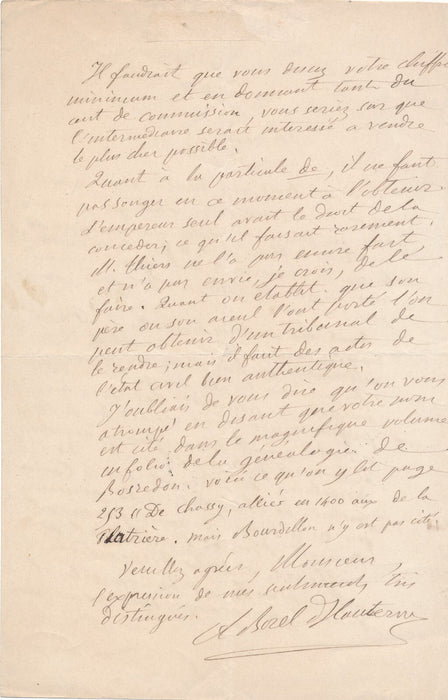 Il faudrait que vous disiez votre chiffre
minimum et en donnant tant du
cent de commission, vous seriez sur que
l'intermédiaire serait interessé a vendre
le plus cher possible.
Quant à la particule de, il ne faut
pas songer en ce moment à l'obtenir.
L'empereur seul avait le droit de la
conceder; ce qu'il faisait rarement.
M. Thiers ne l'a pas encore fait
et n'a pas envie, je crois, de le
faire. Quant on etablit que son
père ou son aieul l'ont porté l'on
peut obtenir d'un tribunal de
le rendre; mais il faut des actes de
l'état civil bien authentique.
J'oubliais de vous dire qu'on vous
a trompé en disant que votre nom
est cité dans le magnifique volume
infolio de la genealogie de
Bosredon. voici ce qu'on y lit page
253 " De Chassy, alliés en 1400 aux de la
Platrière. mais Bourdillon n'y est pas cité
Veuillez agréer, Monsieur,
l'expression de mes sentiments très
distingués.
A Borel d'Hauterive